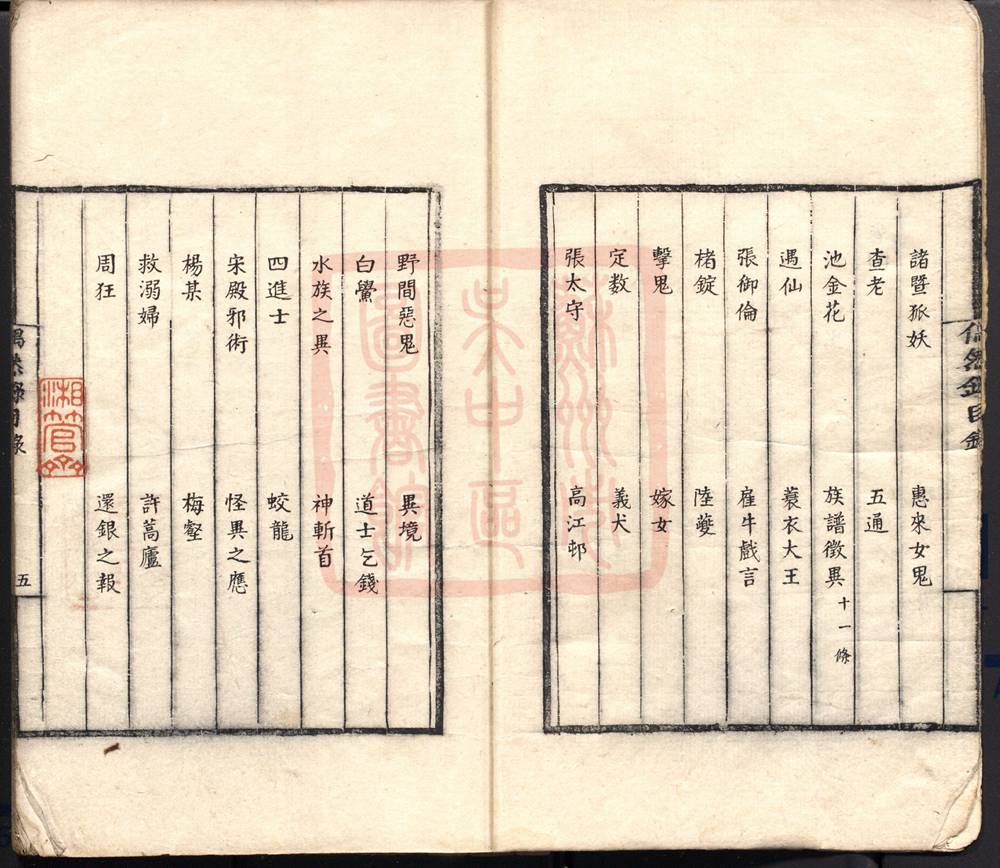 諸暨狐妖 惠來女鬼
查老 五通
池金花 族譜徵異 十一條
遇仙 蓑衣大王
張御倫 雇牛戲言
楮錠 陸夔
擊鬼 嫁女
定數 義犬
張太守 高江邨
野間惡鬼 異境
白鱟 道士乞錢
水族之異 神斬首
四進士 蛟龍
宋殿邪術 怪異之應
楊某 梅壑
救溺婦 許蒿廬
周狂 還銀之報
偶然錄目錄
五
蘇州市
吳中區
圖書館